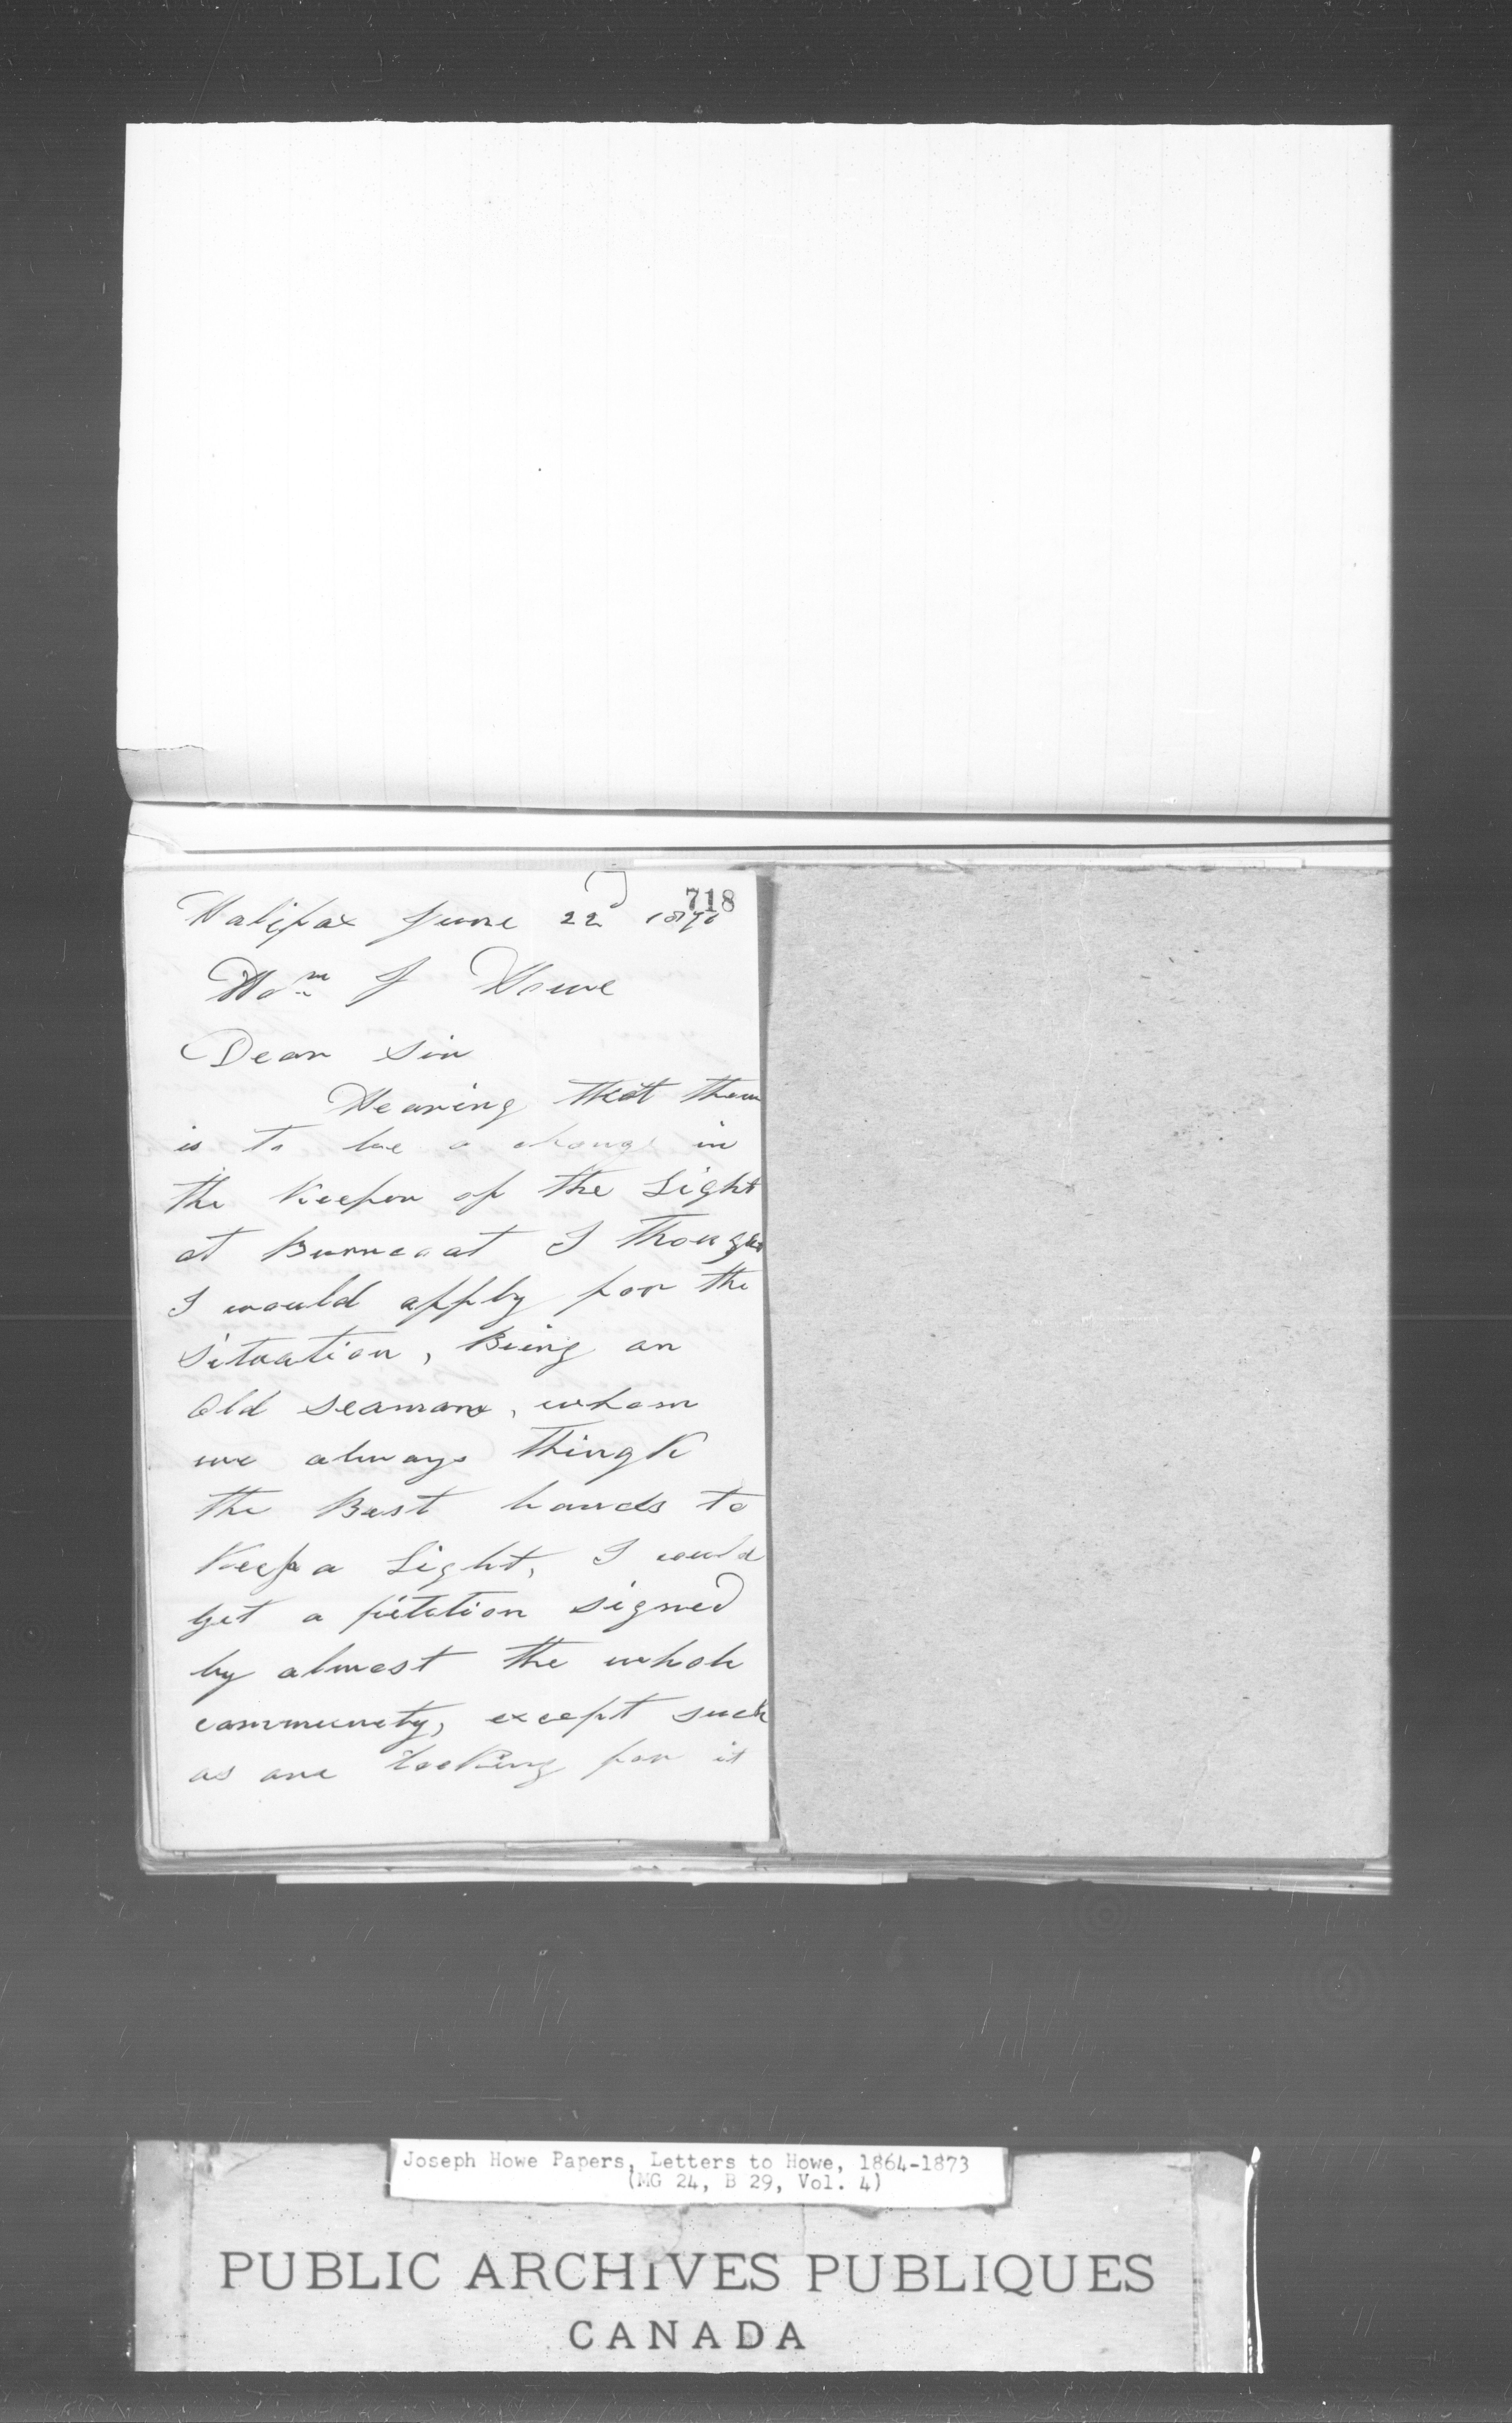 718
Halifax June 22d 1870
Honn J Howe
Dear Sir
Hearing that there
is to be a change in
the Keeper of the Light
at Burncoat I thought
I would apply for the
situation, Being an
Old seaman, whom
we always thingk
the Best hands to
Keep a Light, I could
get a pitition signed
by almost the whole
community, except such
as are looking for it
Joseph Howe Papers, Letters to Howe, 1864-1873
(MG 24, B 29, Vol. 4)
PUBLIC ARCHIVES PUBLIQUES
CANADA